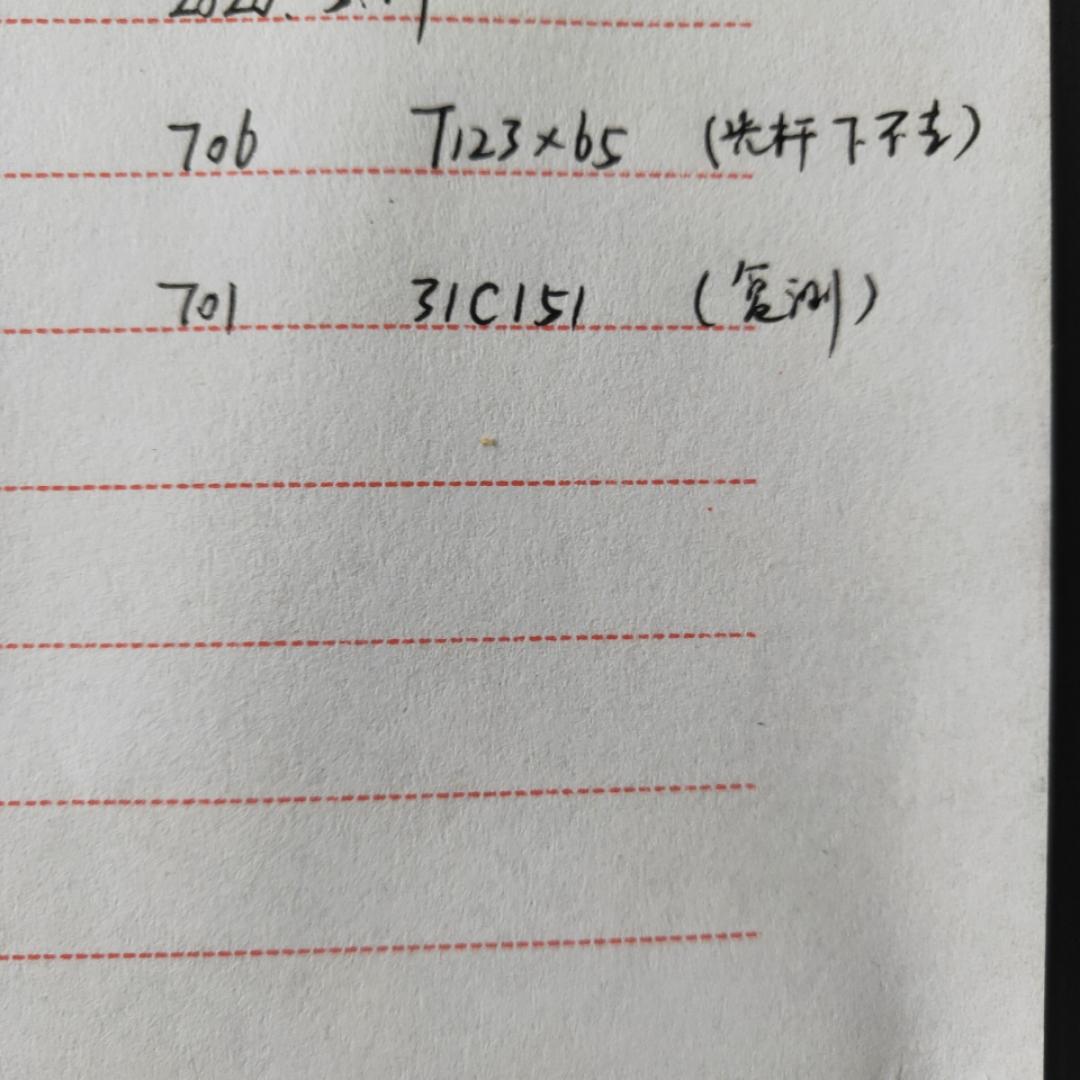 706 T123×65 (光杆下不去)
701 31C151 (复测)